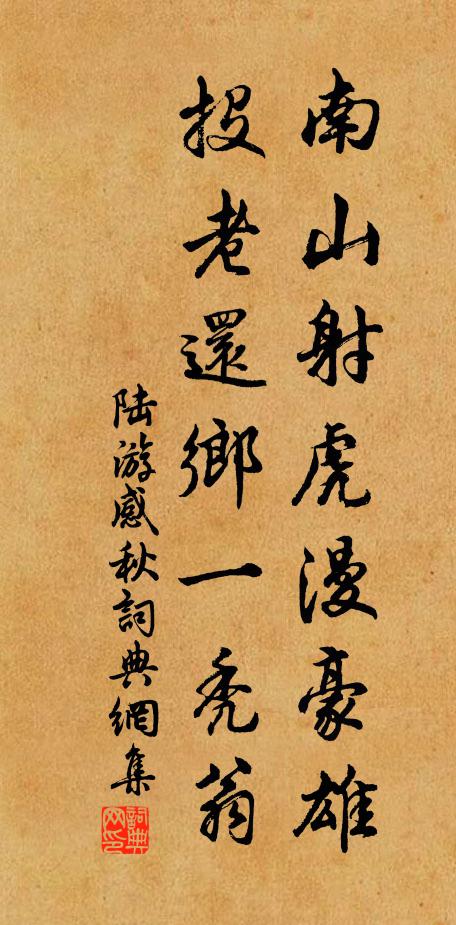 南山射虎漫豪雄
投老還鄉一秃翁
陆游感秋詞典網集
詞典网印